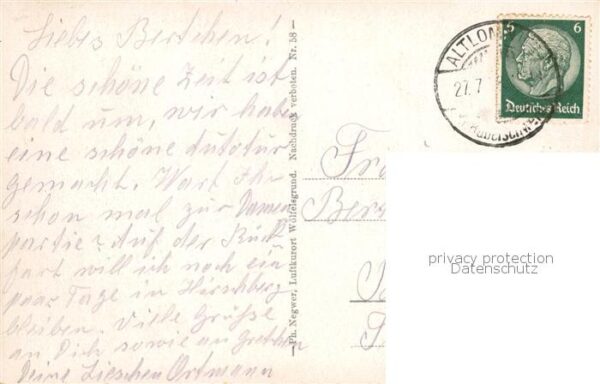 Liebes Bertchen!
Die schöne Zeit ist
bald um, wir habe
eine schöne Autotur
gemacht. Wart Ihr
schon mal zur Damen
partie? Auf der Rück
fart will ich noch ein
paar Tage in Hirschberg
bleiben. Viele Grüße
an Dich sowie an Gretchen
Deine Lieschen Ortmann
Ph. Negwer, Luftkurort Wölfelsgrund. Nachdruck verboten. Nr. 58
ALTLOM
27.7
6
Deutsches Reich
privacy protection
Datenschutz